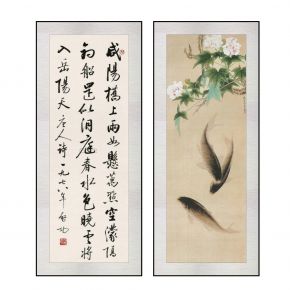 咸陽橋上雨如懸萬點空濛隔
釣船還似洞庭春水色曉雲將
入岳陽天唐人詩一九七八年啟功